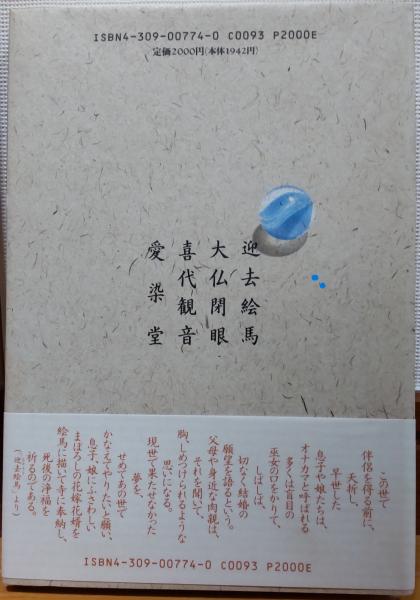 ISBN4-309-00774-0 C0093 P2000E
定価2000円(本体1942円)
迎去絵馬
大仏閉眼
喜代観音
愛染堂
この世で
伴侶を得る前に、
夭折し、
早世した
息子や娘たちは、
オナカマと呼ばれる
多くは盲目の
巫女の口をかりて、
しばしば、
切なく結婚の
願望を語るという。
父母や身近な肉親は、
それを聞いて、
胸、しめつけられるような
思いになる。
現世で果たせなかった
夢を、
せめてあの世で
かなえてやりたいと願い、
息子、娘にふさわしい
まぼろしの花嫁花婿を
絵馬に描いて寺に奉納し、
死後の浄福を
祈るのである。
(「迎去絵馬」より)
ISBN4-309-00774-0 C0093 P2000E